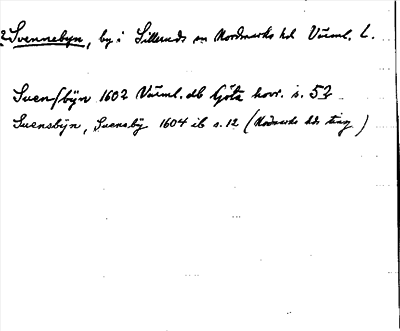 2 Svennebyn, by i Silleruds sn Nordmarks hd Värml. L.
Svensbÿn 1602 Värml. db Göta hovr. s. 52
Svensbÿn, Svensbÿ 1604 ib s. 12 (Nordmarks hds ting)